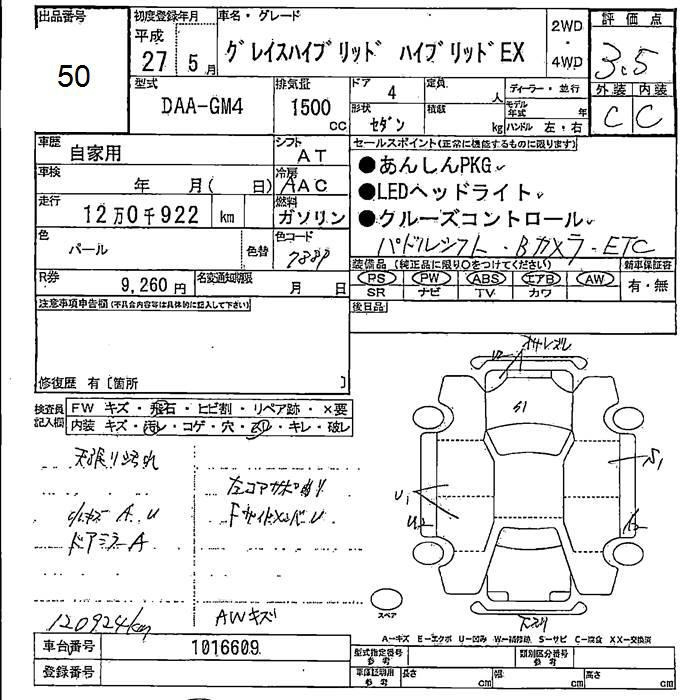 出品番号
50
初度登録年月
平成
27 5 月
車名・グレード
グレイスハイブリッド ハイブリッドEX
2WD
・
4WD
評価点
3.5
外装 内装
C C
型式
DAA-GM4
排気量
1500
CC
ドア
4
形状
セダン
定員
人
積載
kg
ディーラー・並行
モデル年式 年
ハンドル 左・右
車歴
自家用
シフト
AT
車検
年 月( 日)
冷房
AAC
走行
12万0千922 km
燃料
ガソリン
色
パール
色替
色コード
R券
9,260円
名変通知期限
月 日
セールスポイント(正常に機能するものに限ります)
●あんしんPKG
●LEDヘッドライト
●クルーズコントロール
パドルシフト・Bカメラ・ETC
装備品(純正品に限り○をつけてください)
PS PW ABS エアB AW
SR ナビ TV カワ
新車保証書
有・無
後日品
注意事項申告欄(不具合内容等は具体的に記入して下さい)
修復歴 有〔箇所 〕
検査員記入欄
FW キズ・飛石・ヒビ割・リペア跡・×要
内装 キズ・汚レ・コゲ・穴・スリ・キレ・破レ
天張り汚れ
左コアサポ曲り
小キズ A.U
FサイドメンバU
ドアミラーA
120924km
AWキズ
S1
U1
U2
S1
A2
下スリ
スペア
A―キズ E―エクボ U―凹み W―補修跡 S―サビ C―腐食 XX―交換済
車台番号
1016609
登録番号
型式指定番号 参考
類別区分番号 参考
車庫証明用 参考
長さ cm
幅 cm
高さ cm